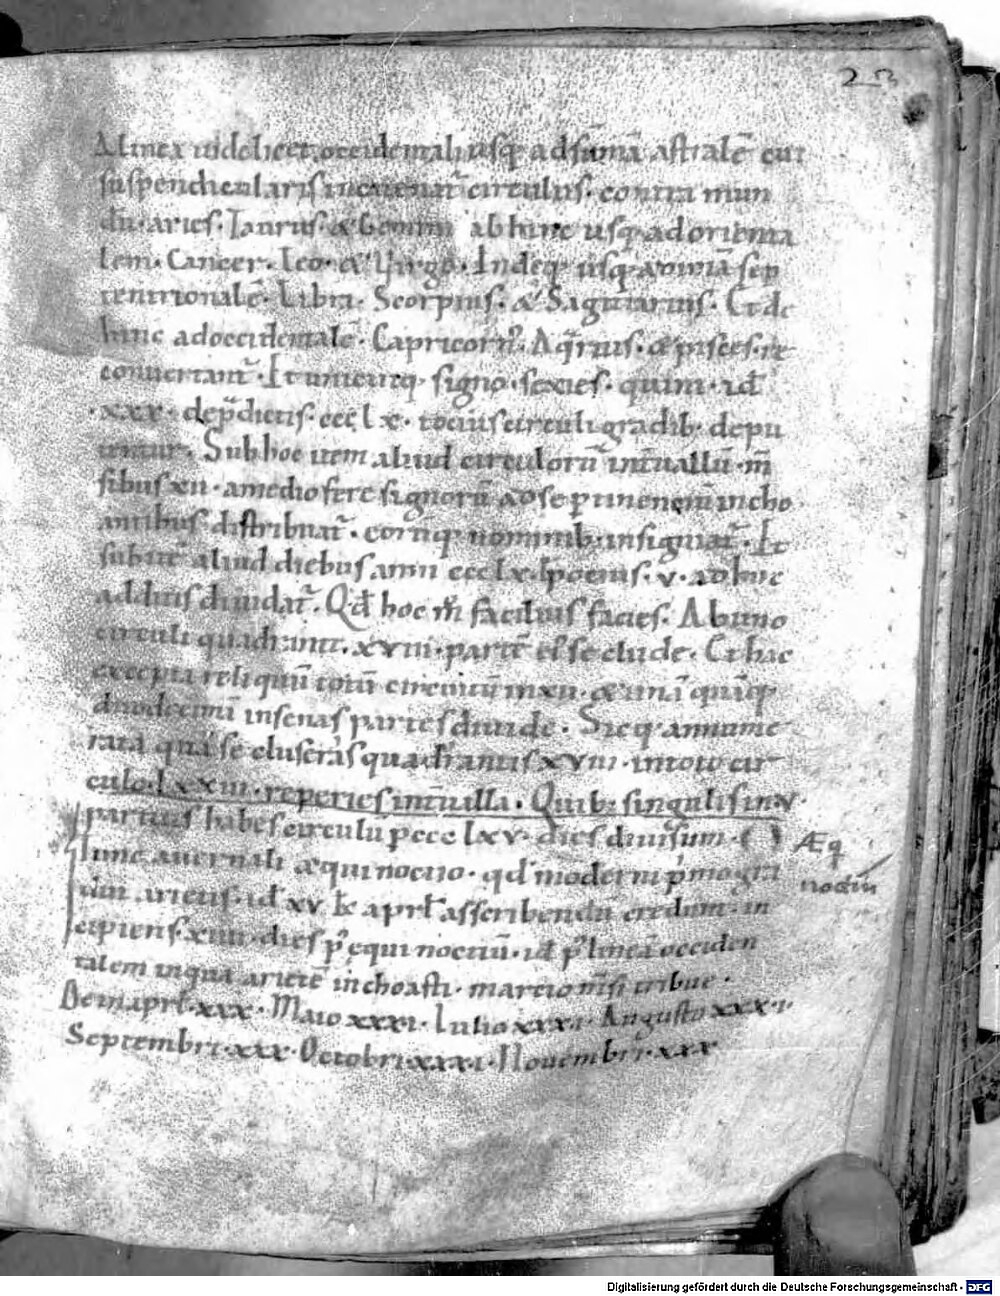 23
A linea videlicet occidentali usq; ad sūmā astralē cui
suspendicularis incuruat̄ circulus. contra mun
dū. aries. Taurus. & Gemini ab hinc usq; ad orienta
lem. Cancer. Leo. & Virgo. Indeq; usq;
tentrionalē. Libra. Scorpius. & Sagittarius. Et de
hinc ad occidentalē. Capricorn᷒. Aq̄rius. & pisces. re
conuertant̄. Et unicuiq; signo. sexies. quini. id
.xxx. de p̄dictis. ccc lx. tocius circuli gradib; depu
tentur. Sub hoc item aliud circulorū int̄uallū. m̄
sibus xii. a medio fere signorū incho
antibus distribuat̄. eorumq; nominib; insigniat̄. Et
aliud diebus anni ccc lx. v. adhuc
diuidat̄. Qd̄ hoc m̄ facilius facies. Ab uno
circuli quadrante. xviii. partē seclude. Et hac
excepta reliquū totū circuitū in xii. &
duodecimū in senas partes diuide. Sicq; annume
rata quā secluseras quadrantis xviii. in toto cir
culo. lxxiii. reperies int̄ualla. Quib; singulis in v.
partitis habes circulū p ccc lxv. dies diuisum. ( )
Æq
noctiū
Tunc a uernali æquinoctio. qd̄ moderni
arietis. id xv. kl̄ aprl̄ asscribendū credunt. in
cipiens. xiiii. dies p̄ equinoctiū. id p̄ lineā occiden
talem in qua arietē inchoasti. marcio m̄si tribue.
Dein aprl̄. xxx. Maio xxxi. Iulio xxxi. Augusto xxxi.
Septembri. xxx. Octobri. xxxi. Nouembri. xxx
Digitalisierung gefördert durch die Deutsche Forschungsgemeinschaft - DFG